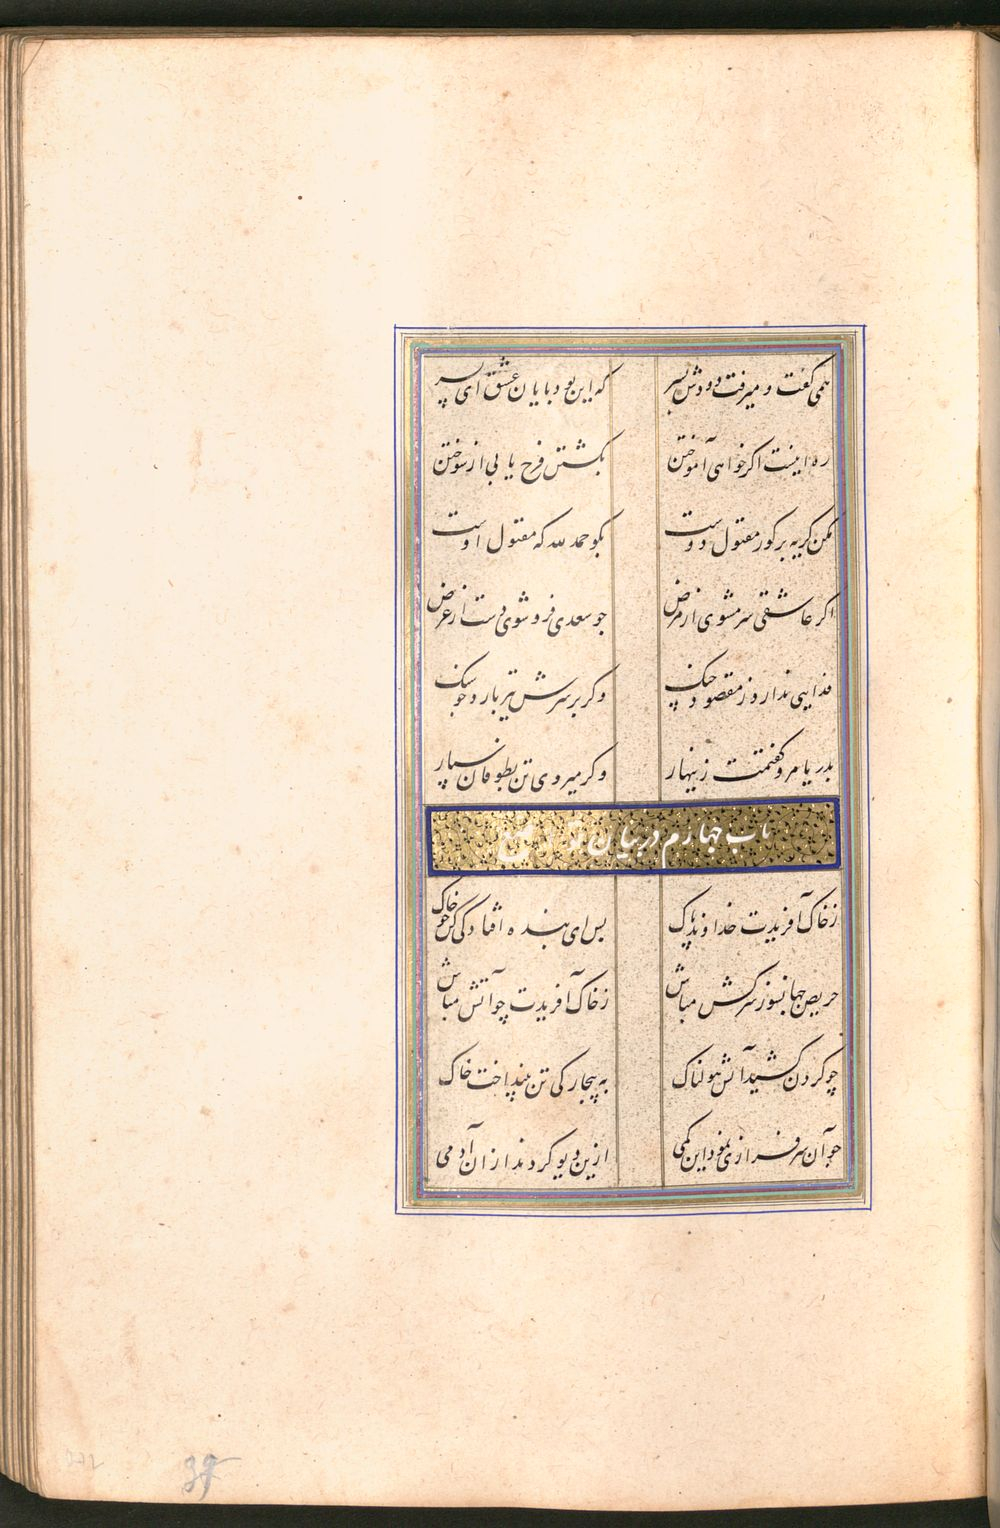 همی گفت و میرفت دودش بسر که این بود پایان عشق ای پسر
ره اینست اکر خواهی آموختن بکشتن فرج یابی از سوختن
مکن گریه بر کور مقتول دوست بکو حمد لله که مقتول اوست
اکر عاشقی سر مشوی از مرض چو سعدی فرو شوی دست از غرض
فدایی ندارد ز مقصود چنک وکر بر سرش تیر بارد و سنک
بدریا مرو کفتمت زینهار وکر میروی تن بطوفان سپار
باب چهارم در بیان تواضع
ز خاک آفریدت خداوند پاک پس ای بنده افتادکی کن چو خاک
حریص و جهانسوز و سرکش مباش ز خاک آفریدت چو آتش مباش
چو کردن کشید آتش هولناک به بیچارکی تن بینداخت خاک
چو آن سرفرازی نمود این کمی ازین دیو کردند از آن آدمی
39